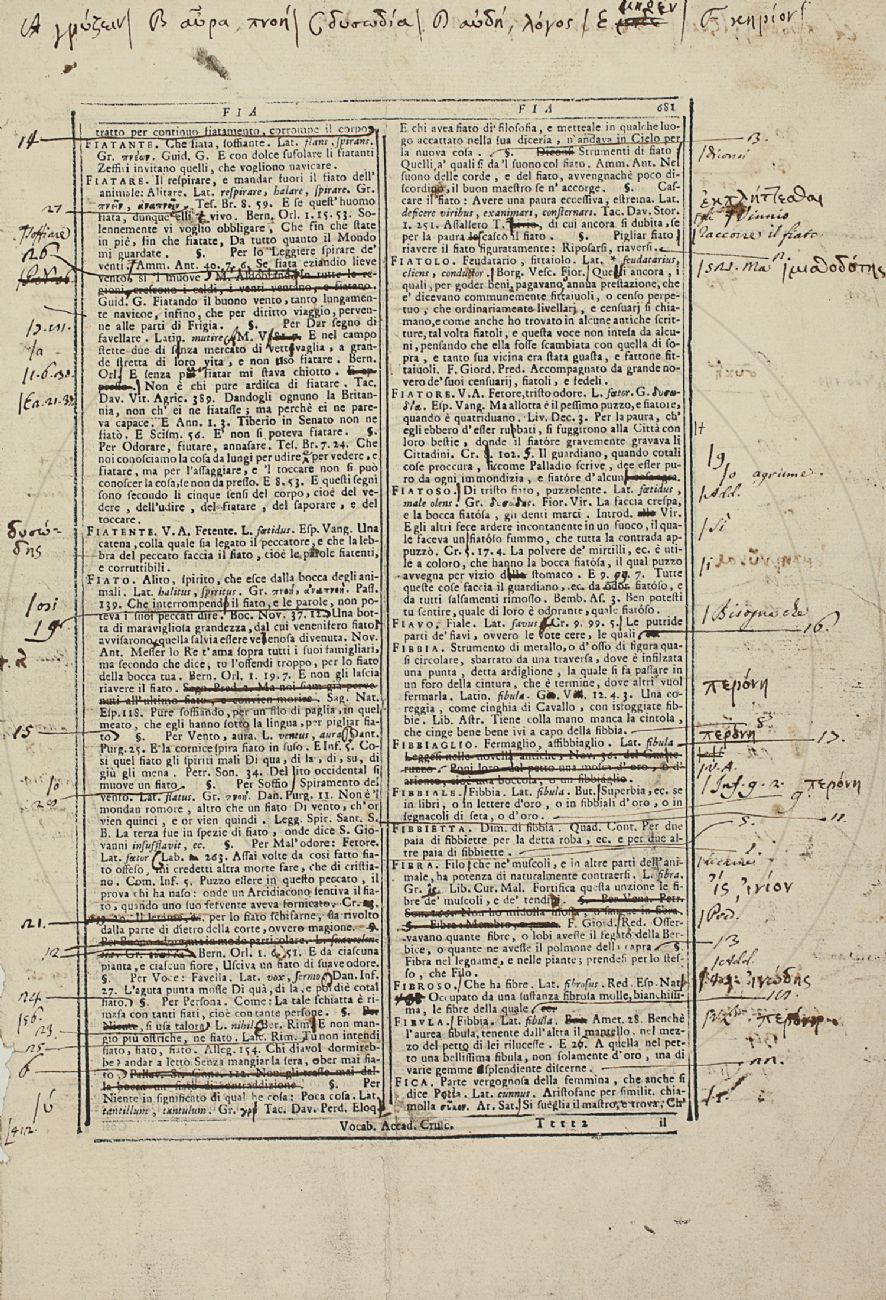 A γρύζειν | B αὖρα, πνοή | C δυσωδία | D αὐδή, λόγος | E | F κηρίον
FIA FIA 681
tratto per continuo fiatamento, corrompe il corpo.
FIATANTE. Che fiata, soffiante. Lat. flans, spirans.
Gr. πνέων. Guid. G. E con dolce sufolare li fiatanti
Zeffiri invitano quelli, che vogliono navicare.
FIATARE. Il respirare, e mandar fuori il fiato dell'
animale: Alitare. Lat. respirare, halare, spirare. Gr.
Tes. Br. 8. 59. E se quest'huomo
fiata, dunque elli è vivo. Bern. Orl. 1. 15. 53. So-
lennemente vi voglio obbligare, Che fin che state
in piè, fin che fiatate, Da tutto quanto il Mondo
mi guardate. §. Per lo Leggiere spirare de'
venti. Amm. Ant. 40. 7. 6. Se fiata eziandio lieve
vento, si muove
gioni, crescono i caldi, i venti ventano, e fiatano.
Guid. G. Fiatando il buono vento, tanto lungamen-
te navicoe, infino, che per diritto viaggio, perven-
ne alle parti di Frigia. §. Per Dar segno di
favellare. Latin. mutire. M. V. E nel campo
stette due dì senza mercato di vettovaglia, a gran-
de stretta di loro vita, e non uso fiatare. Bern.
Orl. E senza più fiatar mi stava chiotto.
Non è chi pure ardisca di fiatare. Tac.
Dav. Vit. Agric. 389. Dandogli ognuno la Britan-
nia, non ch' ei ne fiatasse; ma perchè ei ne pare-
va capace. E Ann. 1. 3. Tiberio in Senato non ne
fiatò. E Scism. 56. E' non si poteva fiatare. §.
Per Odorare, fiutare, annasare. Tes. Br. 7. 24. Che
noi conosciamo la cosa da lungi per udire, per vedere, e
fiatare, ma per l'assaggiare, e 'l toccare non si può
conoscer la cosa, se non da presso. E 8. 53. E questi segni
sono secondo li cinque sensi del corpo, cioè del ve-
dere, dell'udire, del fiatare, del saporare, e del
toccare.
FIATENTE. V.A. Fetente. L. fœtidus. Esp. Vang. Una
catena, colla quale sia legato il peccatore, e che la leb-
bra del peccato faccia il fiato, cioè le parole fiatenti,
e corruttibili.
FIATO. Alito, spirito, che esce dalla bocca degli ani-
mali. Lat. halitus, spiritus. Gr. πνοή, ἀναπνοή. Pass.
139. Che interrompendo il fiato, e le parole, non po-
teva i suoi peccati dire. Boc. Nov. 37. 12. Una bot-
ta di maravigliosa grandezza, dal cui venenifero fiato
avvisarono quella salvia essere velenosa divenuta. Nov.
Ant. Messer lo Re t'ama sopra tutti i suoi famigliari,
ma secondo che dice, tu l'offendi troppo, per lo fiato
della bocca tua. Bern. Orl. 1. 19. 7. E non gli lascia
riavere il fiato.
Sag. Nat.
Esp. 118. Pure soffiando, per un filo di paglia, in quel
meato, che egli hanno sotto la lingua, per pigliar fia-
to. §. Per Vento, aura. L. ventus, aura. Dant.
Purg. 25. E la cornice spira fiato in suso. E Inf. 5. Co-
sì quel fiato gli spiriti mali Di qua, di la, di su, di
giù gli mena. Petr. Son. 34. Del lito occidental si
muove un fiato. §. Per Soffio, Spiramento del
vento. Lat. flatus. Gr. πνοή. Dan. Purg. 11. Non è 'l
mondan romore, altro che un fiato Di vento, ch'or
vien quinci, e or vien quindi. Legg. Spir. Sant. S.
B. La terza fue in spezie di fiato, onde dice S. Gio-
vanni insufflavit, ec. §. Per Mal'odore: Fetore.
Lat. fœtor. Lab. n. 263. Assai volte da così fatto fia-
to offeso, mi credetti altra morte fare, che di cristia-
no. Com. Inf. 5. Puzzo essere in questo peccato, il
prova chi ha naso: onde un Arcidiacono sentiva il fia-
to, quando uno suo servente aveva fornicato. Cr.
per lo fiato schifarne, sia rivolto
dalla parte di dietro della corte, ovvero magione. §.
Per Buono odore in modo particolare.
Bern. Orl. 1. 6. 51. E da ciascuna
pianta, e ciascun fiore, Usciva un fiato di suave odore.
§. Per Voce: Favella. Lat. vox, sermo. Dan. Inf.
27. L'aguta punta mosse Di quà, di là, e poi diè cotal
fiato. §. Per Persona. Come: La tale schiatta è ri-
masa con tanti fiati, cioè con tante persone. §. Per
Niente, si usa talora. L. nihil. Ber. Rim. E non man-
gio più ostriche, ne fiato. Lasc. Rim. Tu non intendi
fiato, fiato, fiato. Alleg. 154. Chi diavol dormireb-
be? andar a letto Senza mangiar la sera, ober mai fia-
to.
la bocca un fiato di contraddizione. §. Per
Niente in significato di qual he cosa: Poca cosa. Lat.
tantillum, tantulum. Gr. γρύ. Tac. Dav. Perd. Eloq.
E chi avea fiato di filosofia, e metteale in qualche luo-
go accattato nella sua diceria, n'andava in Cielo per
la nuova cosa. §. Diconsi Strumenti di fiato
Quelli, a' quali si da 'l suono col fiato. Amm. Ant. Nel
suono delle corde, e del fiato, avvengnachè poco di-
scordino, il buon maestro se n' accorge. §. Cas-
care il fiato: Avere una paura eccessiva, estreina. Lat.
deficere viribus, exanimari, consternari. Tac. Dav. Stor.
1. 251. Assallero T. di cui ancora si dubita, se
per la paura lo cascò il fiato. §. Pigliar fiato,
riavere il fiato figuratamente: Riposarsi, riaversi.
FIATOLO. Feudatario, fittaiolo. Lat. * feudatarius,
cliens, conductor. Borg. Vesc. Fior. Questi ancora, i
quali, per goder beni, pagavano annua prestazione, che
e' dicevano communemente fittaiuoli, o censo perpe-
tuo, che ordinariamente livellarj, e censuarj si chia-
mano, e come anche ho trovato in alcune antiche scrit-
ture, tal volta fiatoli, e questa voce non intesa da alcu-
ni, pensando che ella fosse scambiata con quella di so-
pra, e tanto sua vicina era stata guasta, e fattone fit-
taiuoli. F. Giord. Pred. Accompagnato da grande no-
vero de' suoi censuarj, fiatoli, e fedeli.
FIATORE. V.A. Fetore, tristo odore. L. fœtor. G. δυσω-
δία. Esp. Vang. Ma allotta è il pessimo puzzo, e fiatore,
quando è quatriduano. Liv. Dec. 3. Per la paura, ch'
egli ebbero d'esser rubbati, si fuggirono alla Città con
loro bestie, donde il fiatòre gravemente gravava li
Cittadini. Cr. 102. Il guardiano, quando cotali
cose proccura, siccome Palladio scrive, dee esser pu-
ro da ogni immondizia, e fiatóre d'alcun
FIATOSO. Di tristo fiato, puzzolente. Lat. fœtidus,
male olens. Gr. δυσώδης. Fior. Vir. La faccia crespa,
e la bocca fiatósa, gli denti marci. Introd. alle Vir.
E gli altri fece ardere incontanente in un fuoco, il qua-
le faceva un fiatóso fummo, che tutta la contrada ap-
puzzò. Cr. 5. 17. 4. La polvere de' mirtilli, ec. è uti-
le a coloro, che hanno la bocca fiatósa, il qual puzzo
avvegna per vizio dello stomaco. E 9. 7. Tutte
queste cose faccia il guardiano, ec. da odor fiatóso, e
da tutti salsamenti rimosso. Bemb. As. 3. Ben potesti
tu sentire, quale di loro è odorante, quale fiatóso.
FIAVO. Fiale. Lat. favus. Cr. 9. 99. 5. Le putride
parti de' fiavi, ovvero le vote cere, le quali
FIBBIA. Strumento di metallo, o d'osso di figura qua-
si circolare, sbarrato da una traversa, dove è infilzata
una punta, detta ardiglione, la quale si fa passare in
un foro della cintura, che è termine, dove altri vuol
fermarla. Latin. fibula. G. V. 12. 4. 3. Una co-
reggia, come cinghia di Cavallo, con isfoggiate fib-
bie. Lib. Astr. Tiene colla mano manca la cintola,
che cinge bene bene ivi a capo della fibbia.
FIBBIAGLIO. Fermaglio, affibbiaglio. Lat. fibula.
Leggesi nelle novelle antiche,
FIBBIALE. Fibbia. Lat. fibula. But. Superbia, ec. se
in libri, o in lettere d'oro, o in fibbiali d'oro, o in
segnacoli di seta, o d'oro.
FIBBIETTA. Dim. di fibbia. Quad. Cont. Per due
paia di fibbiette per la detta roba, ec. e per due al-
tre paia di fibbiette.
FIBRA. Filo, che ne' muscoli, e in altre parti dell'ani-
male, ha potenza di naturalmente contraersi. L. fibra.
Gr. Lib. Cur. Mal. Fortifica questa unzione le fi-
bre de' muscoli, e de' tendini. §. Per Vena. Petr.
§. Fibra: Membro, F. Giord. Pred. Osser-
vavano quante fibre, o lobi avesse il fegato della Ber-
bice, o quante ne avesse il polmone della capra. §.
Fibra nel legname, e nelle piante; prendesi per lo stes-
so, che Filo.
FIBROSO. Che ha fibre. Lat. fibrosus. Red. Esp. Nat.
Occupato da una sustanza fibrosa molle, bianchissi-
ma, le fibre della quale
FIBULA. Fibbia. Lat. fibula. Amet. 28. Benchè
l'aurea fibula, tenente dall'altra il mantello, nel mez-
zo del petto di lei rilucesse. E 29. A quella nel pet-
to una bellissima fibula, non solamente d'oro, una di
varie gemme splendiente discerne.
FICA. Parte vergognosa della femmina, che anche si
dice Potta. Lat. cunnus. Aristofane per similit. chia-
molla σῦκον. Ar. Sat. Si sueglia il mastro, e trova, Ch'
Vocab. Accad. Crusc. Tttt 2 il
14
27
26
δυσώ-
δης
osi
19
15
21.
12
24
23.
25
6
13.
Diconsi
ἐκπλήττεσθαι
riaccorre il fiato
μισθοδότης
agrume.
Add.
Bisogna che
16.
περόνη
8.
περόνη
17.
V. A.
Inf. g. 2. περόνη
5. 11.
ἲς ἰνίον
Pred.
13
Add.
ἰνώδης
περόνη